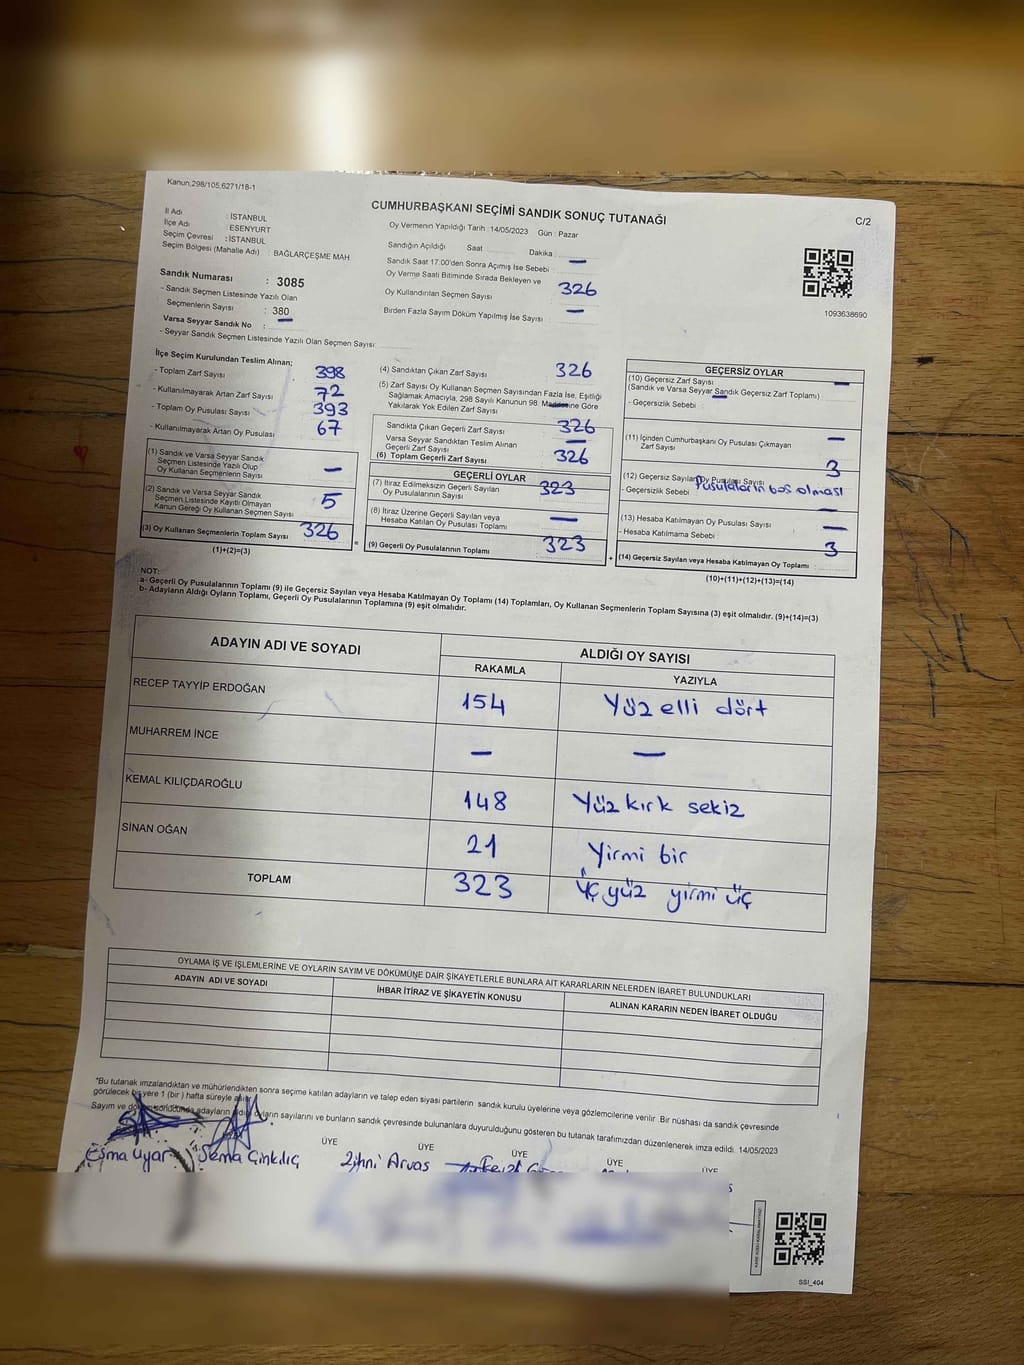 Kanun,298/105,6271/18-1
CUMHURBAŞKANI SEÇİMİ SANDIK SONUÇ TUTANAĞI
C/2
İl Adı : İSTANBUL
İlçe Adı : ESENYURT
Seçim Çevresi : İSTANBUL
Seçim Bölgesi (Mahalle Adı) : BAĞLARÇEŞME MAH.
Sandık Numarası : 3085
- Sandık Seçmen Listesinde Yazılı Olan
Seçmenlerin Sayısı : 380
Varsa Seyyar Sandık No : —
- Seyyar Sandık Seçmen Listesinde Yazılı Olan Seçmen Sayısı:
Oy Vermenin Yapıldığı Tarih : 14/05/2023 Gün : Pazar
Sandığın Açıldığı Saat Dakika :
Sandık Saat 17.00'den Sonra Açımış İse Sebebi : —
Oy Verme Saati Bitiminde Sırada Bekleyen ve
Oy Kullandırılan Seçmen Sayısı : 326
Birden Fazla Sayım Döküm Yapılmış İse Sayısı : —
1093638690
İlçe Seçim Kurulundan Teslim Alınan;
- Toplam Zarf Sayısı : 398
- Kullanılmayarak Artan Zarf Sayısı : 72
- Toplam Oy Pusulası Sayısı : 393
- Kullanılmayarak Artan Oy Pusulası : 67
(1) Sandık ve Varsa Seyyar Sandık
Seçmen Listesinde Yazılı Olup
Oy Kullanan Seçmenlerin Sayısı : —
(2) Sandık ve Varsa Seyyar Sandık
Seçmen Listesinde Kayıtlı Olmayan
Kanun Gereği Oy Kullanan Seçmen Sayısı : 5
(3) Oy Kullanan Seçmenlerin Toplam Sayısı : 326
(1)+(2)=(3)
(4) Sandıktan Çıkan Zarf Sayısı 326
(5) Zarf Sayısı Oy Kullanan Seçmen Sayısından Fazla İse, Eşitliği
Sağlamak Amacıyla, 298 Sayılı Kanunun 98. Maddesine Göre
Yakılarak Yok Edilen Zarf Sayısı —
Sandıkta Çıkan Geçerli Zarf Sayısı : 326
Varsa Seyyar Sandıktan Teslim Alınan
Geçerli Zarf Sayısı : —
(6) Toplam Geçerli Zarf Sayısı : 326
GEÇERLİ OYLAR
(7) İtiraz Edilmeksizin Geçerli Sayılan
Oy Pusulasının Sayısı : 323
(8) İtiraz Üzerine Geçerli Sayılan veya
Hesaba Katılan Oy Pusulası Toplamı : —
(9) Geçerli Oy Pusulalarının Toplamı : 323
GEÇERSİZ OYLAR
(10) Geçersiz Zarf Sayısı —
(Sandık ve Varsa Seyyar Sandık Geçersiz Zarf Toplamı) :
- Geçersizlik Sebebi : —
(11) İçinden Cumhurbaşkanı Oy Pusulası Çıkmayan
Zarf Sayısı : —
(12) Geçersiz Sayılan Oy Pusulası Sayısı : 3
- Geçersizlik Sebebi : Pusulaların boş olması
(13) Hesaba Katılmayan Oy Pusulası Sayısı : —
- Hesaba Katılmama Sebebi : —
(14) Geçersiz Sayılan veya Hesaba Katılmayan Oy Toplamı : 3
(10)+(11)+(12)+(13)=(14)
NOT:
a- Geçerli Oy Pusulalarının Toplamı (9) ile Geçersiz Sayılan veya Hesaba Katılmayan Oy Toplamı (14) Toplamları, Oy Kullanan Seçmenlerin Toplam Sayısına (3) eşit olmalıdır. (9)+(14)=(3)
b- Adayların Aldığı Oyların Toplamı, Geçerli Oy Pusulalarının Toplamına (9) eşit olmalıdır.
ADAYIN ADI VE SOYADI ALDIĞI OY SAYISI
RAKAMLA YAZIYLA
RECEP TAYYİP ERDOĞAN 154 Yüz elli dört
MUHARREM İNCE — —
KEMAL KILIÇDAROĞLU 148 Yüz kırk sekiz
SİNAN OĞAN 21 Yirmi bir
TOPLAM 323 Üç yüz yirmi üç
OYLAMA İŞ VE İŞLEMLERİNE VE OYLARIN SAYIM VE DÖKÜMÜNE DAİR ŞİKAYETLERLE BUNLARA AİT KARARLARIN NELERDEN İBARET BULUNDUKLARI
ADAYIN ADI VE SOYADI İHBAR İTİRAZ VE ŞİKAYETİN KONUSU ALINAN KARARIN NEDEN İBARET OLDUĞU
*Bu tutanak imzalandıktan ve mühürlendikten sonra seçime katılan adayların ve talep eden siyasi partilerin sandık kurulu üyelerine veya gözlemcilerine verilir. Bir nüshası da sandık çevresinde
görülecek bir yere 1 (bir) hafta süreyle asılır.
Sayım ve döküm sonucunda adayların aldığı oyların sayılarını ve bunların sandık çevresinde bulunanlara duyurulduğunu gösteren bu tutanak tarafımızdan düzenlenerek imza edildi. 14/05/2023
ÜYE ÜYE ÜYE ÜYE ÜYE
Esma Uyar Sema Çinkılıç Zihni Arvas
SSI_404